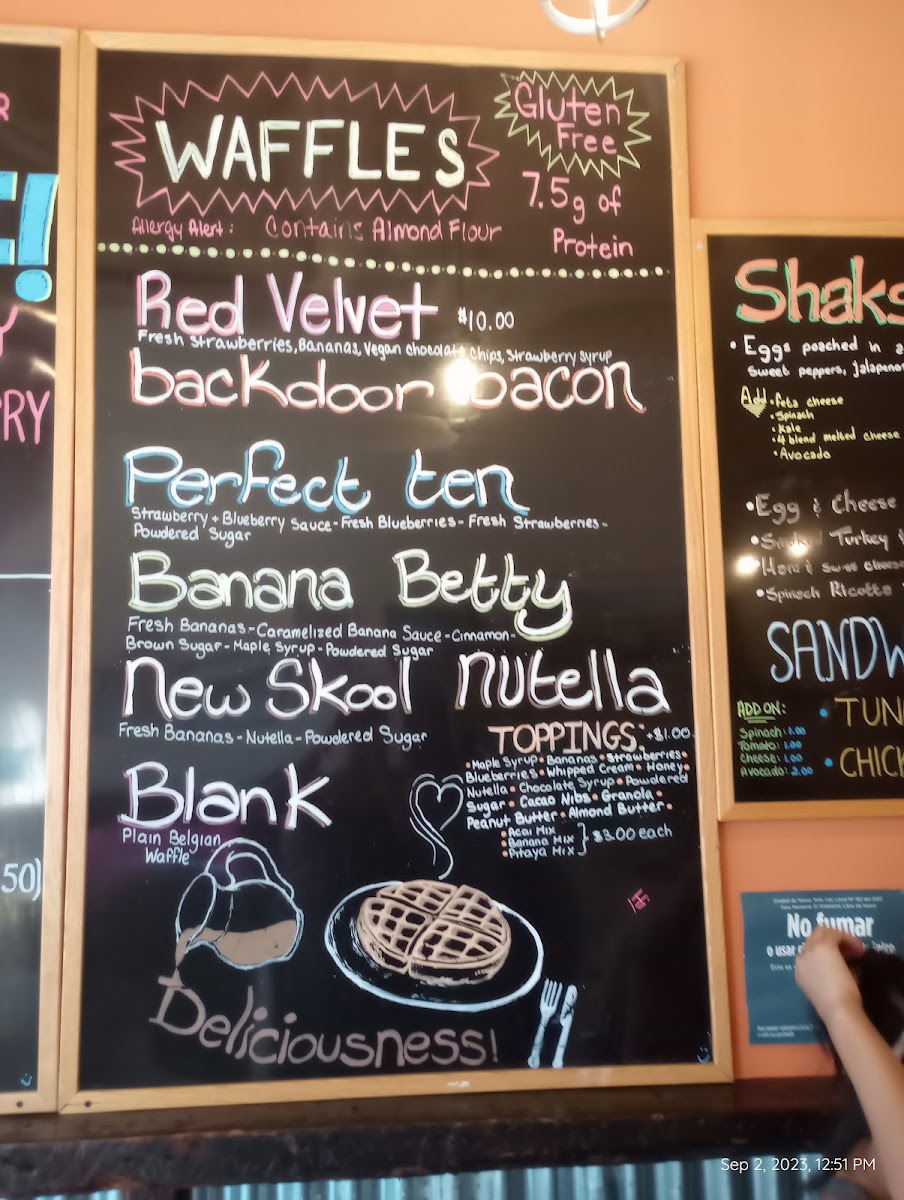 R
!
Y
RRY
50)
WAFFLES
Gluten
Free
7.5g of
Protein
Allergy Alert: Contains Almond Flour
Red Velvet $10.00
Fresh Strawberries, Bananas, Vegan chocolate Chips, Strawberry syrup
backdoor bacon
Perfect ten
Strawberry + Blueberry Sauce - Fresh Blueberries - Fresh Strawberries -
Powdered Sugar
Banana Betty
Fresh Bananas - Caramelized Banana Sauce - Cinnamon -
Brown Sugar - Maple Syrup - Powdered Sugar
New Skool Nutella
Fresh Bananas - Nutella - Powdered Sugar
TOPPINGS: +$1.00
• Maple Syrup • Bananas • Strawberries •
Blueberries • Whipped Cream • Honey •
Nutella • Chocolate Syrup • Powdered
Sugar • Cacao Nibs • Granola •
Peanut Butter • Almond Butter •
• Acai Mix
• Banana Mix } $3.00 each
• Pitaya Mix
Blank
Plain Belgian
Waffle
Deliciousness!
Shaks
• Eggs poached in a
Sweet peppers, jalapeno
Add • feta cheese
• Spinach
• Kale
• 4 blend melted cheese
• Avocado
• Egg & Cheese
• Smoked Turkey &
• Ham & Swiss cheese
• Spinach Ricotta
SANDW
ADD ON:
Spinach: 1.00
Tomato: 1.00
Cheese: 1.00
Avocado: 2.00
• TUN
• CHICK
No fumar
o usar
Sep 2, 2023, 12:51 PM